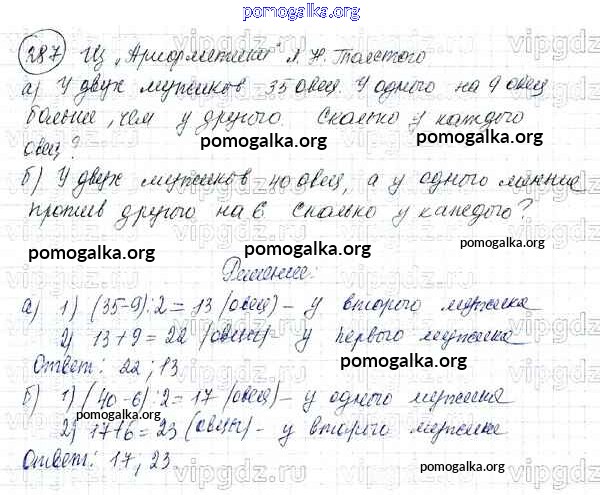 pomogalka.org
287 Из "Арифметики" Л. Н. Толстого
а) У двух мужиков 35 овец. У одного на 9 овец
больше, чем у другого. Сколько у каждого
pomogalka.org
овец?
б) У двух мужиков 40 овец, а у одного меньше
против другого на 6. Сколько у каждого?
pomogalka.org pomogalka.org pomogalka.org
Решение:
а) 1) (35-9):2 = 13 (овец) - у второго мужика
2) 13+9 = 22 (овцы) - у первого мужика
Ответ: 22; 13 pomogalka.org
б) 1) (40-6):2 = 17 (овец) - у одного мужика
pomogalka.org
2) 17+6 = 23 (овцы) - у второго мужика
Ответ: 17, 23
pomogalka.org pomogalka.org
vipgdz.ru